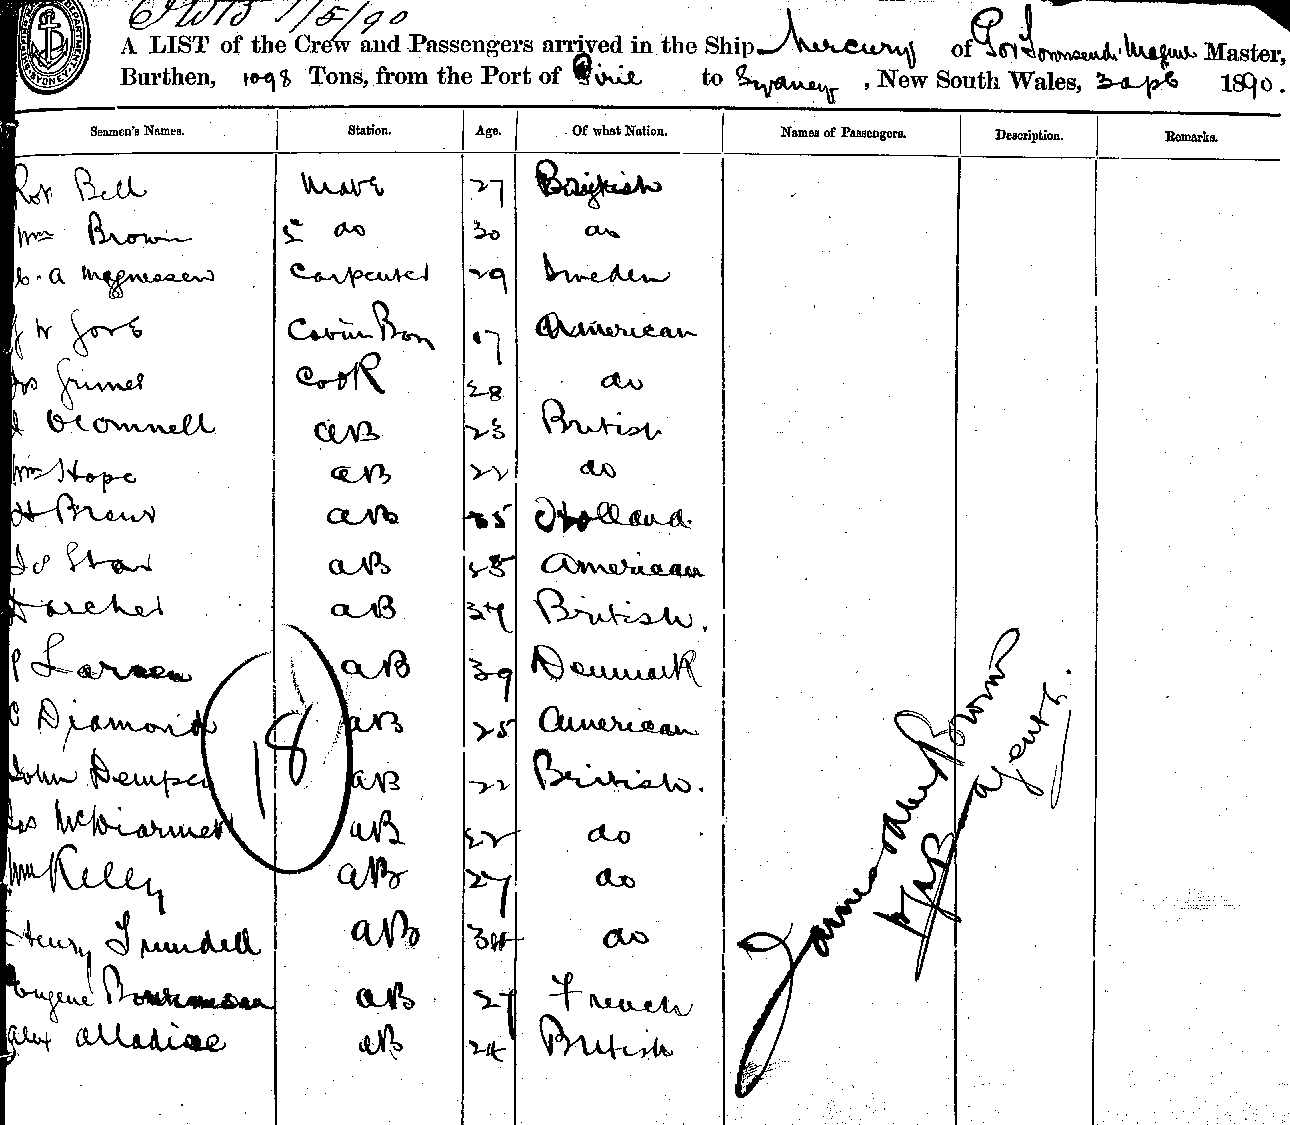 1/5/90
A LIST of the Crew and Passengers arrived in the Ship Mercury of Port Townsend Master,
Burthen, 1098 Tons, from the Port of Pirie to Sydney, New South Wales, 30 Apl 1890.
Seamen's Names. Station. Age. Of what Nation. Names of Passengers. Description. Remarks.
Rot Bell Mate 27 British
Wm Brown 2 do 30 do
A Magnessen Carpenter 29 Sweden
W Gove Cabin Boy 17 American
Jas Grimes Cook 28 do
O'Connell AB 23 British
Wm Hope AB 22 do
H AB 35 Holland
Star AB American
Archer AB 37 British.
P Larsen AB 39 Denmark
C Diamond AB 25 American
John Dempsey AB 22 British.
Jas McDiarmet AB 22 do
Wm Kelly AB 27 do
Henry Trundell AB 34 do
Eugene AB 27 French
Alex Alladice AB 24 British
18
James Brown
Agents.